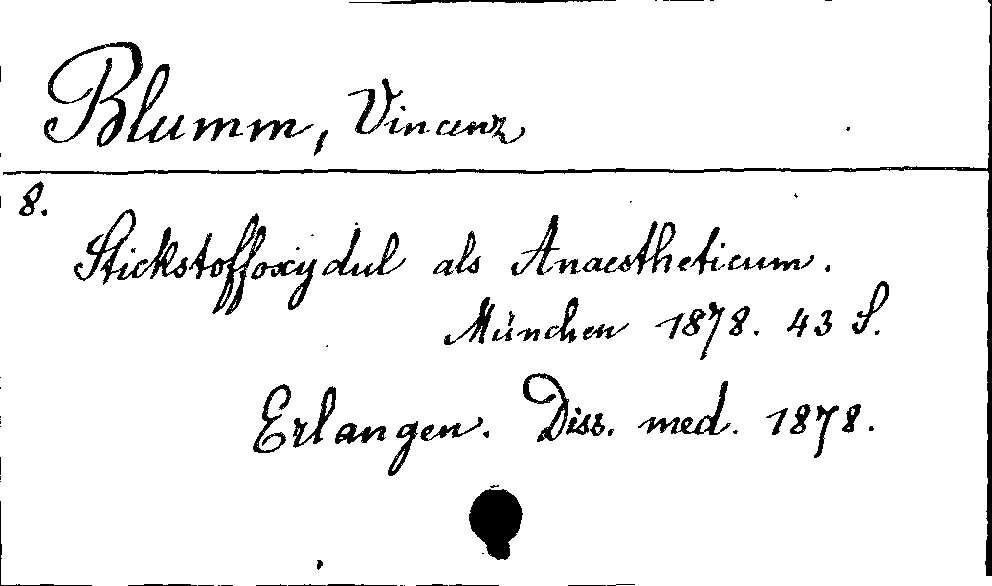 Blumm, Vincenz
8.
Stickstoffoxydul als Anaestheticum.
München 1878. 43 S.
Erlangen. Diss. med. 1878.